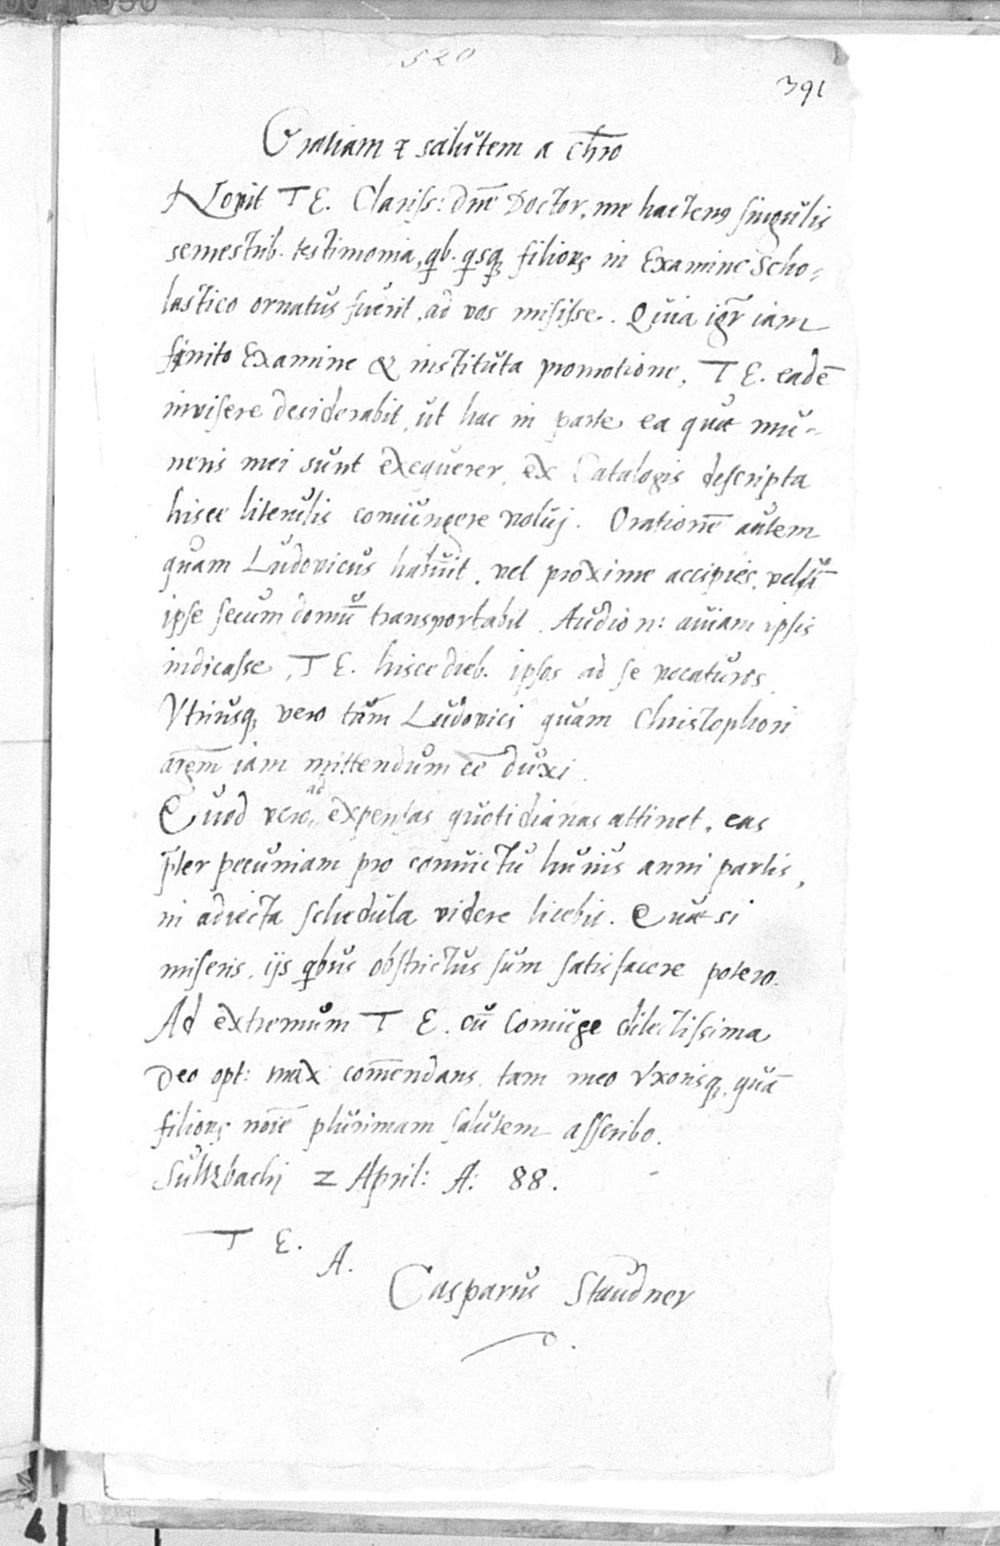 520
391
Gratiam & salutem a Chro
Novit T E. Clariss: Dne Doctor, me hactenus singulis
semestrib. testimonia, qb. qsq filiorum in Examine Scho-
lastico ornatus fuerit, ad vos misisse. Quia igr iam
finito Examine & instituta promotione, T E. eadē
invisere desiderabit, ut hac in parte ea quæ mu-
neris mei sunt exequerer, ex Catalogis descripta
hisce literulis coniungere voluj. Orationē autem
quam Ludovicus habuit, vel proxime accipies, vel
ipse secum domū transportabit. Audio n: aviam ipsis
indicasse, T E. hisce dieb. ipsos ad se vocaturos.
Vtriusq, vero tam Ludovici quam Christophori
iam mittendum ēē duxi.
Quod vero ad expensas quotidianas attinet, eas
pter pecuniam pro convictu huius anni partis,
in adiecta schedula videre licebit. Quæ si
miseris, ijs qbus obstrictus sum satisfacere potero.
Ad extremum T E. cū Coniuge dilectissima
Deo opt: max comēndans, tam meo Vxorisq, quā
filiorum noīe plurimam salutem asscribo.
Sultzbachj 2 April: A: 88.
T E.
A.
Casparus Staudner